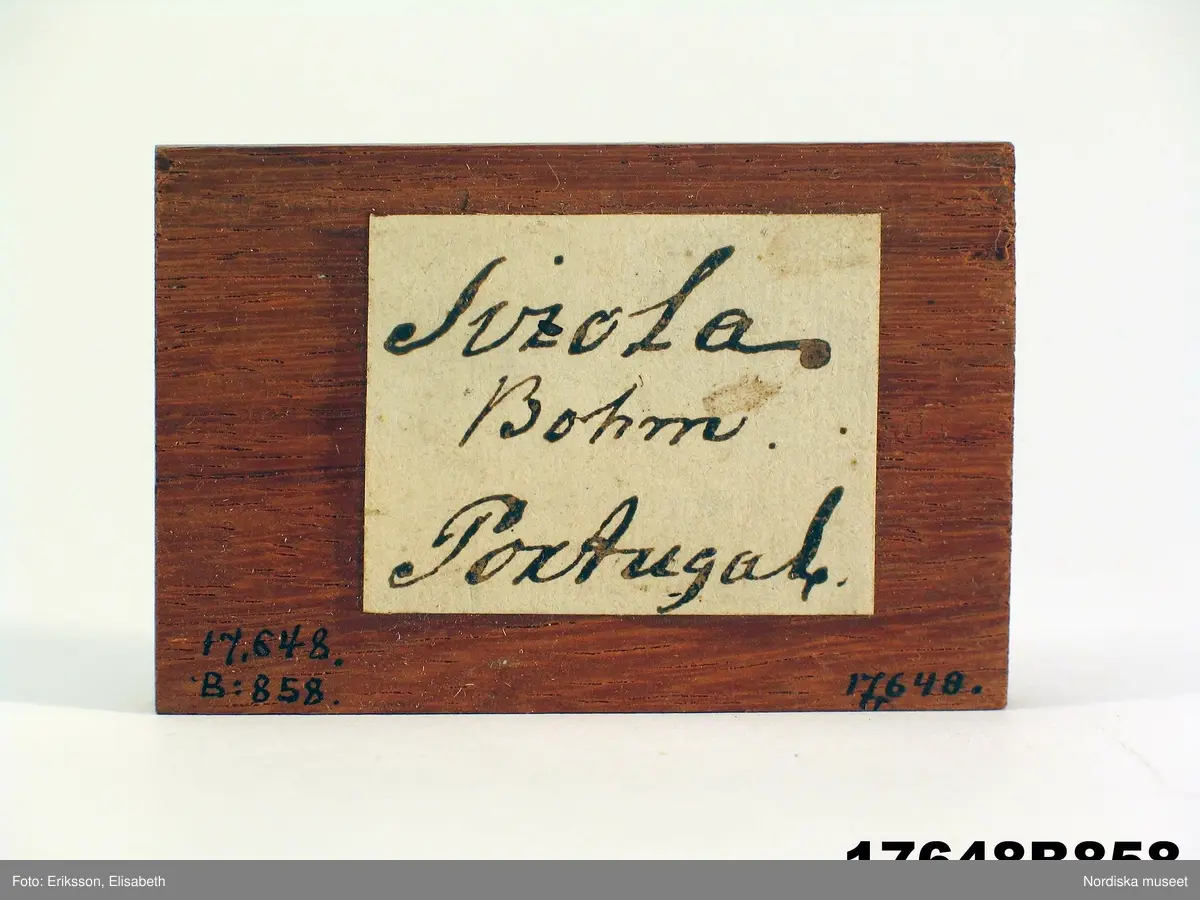 Svzola
Bohm.
Portugal.
17,648.
B:858.
17,648.
17648B858
Foto: Eriksson, Elisabeth
Nordiska museet